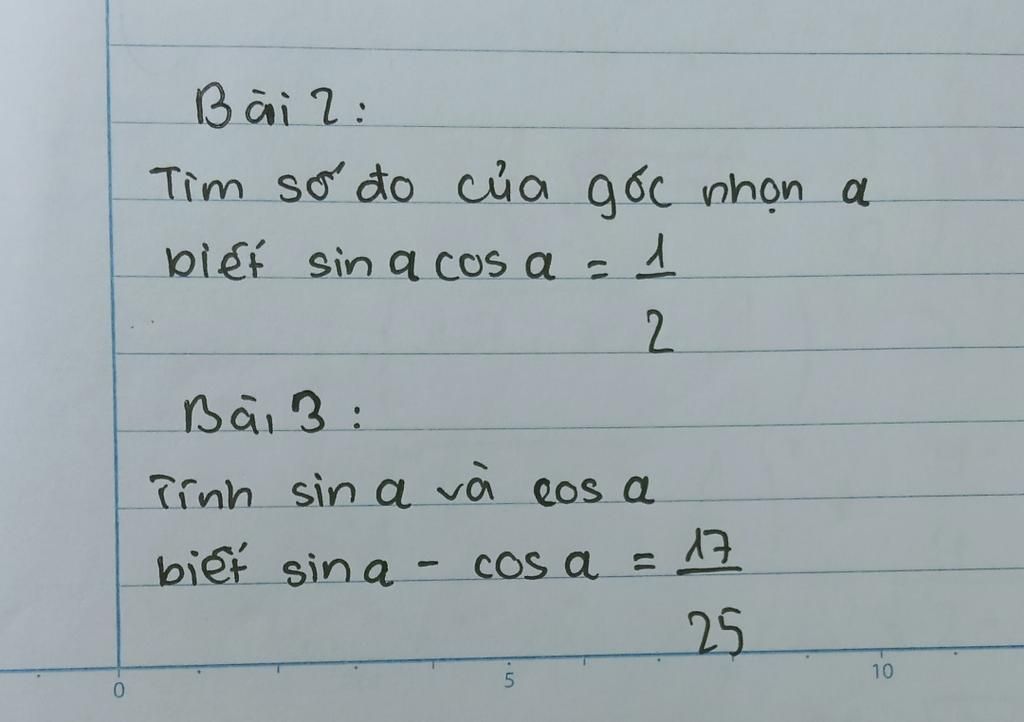 Bài 2:
Tìm số đo của góc nhọn a
biết sin a cos a = 1/2
Bài 3:
Tính sin a và cos a
biết sin a - cos a = 17/25
0 5 10